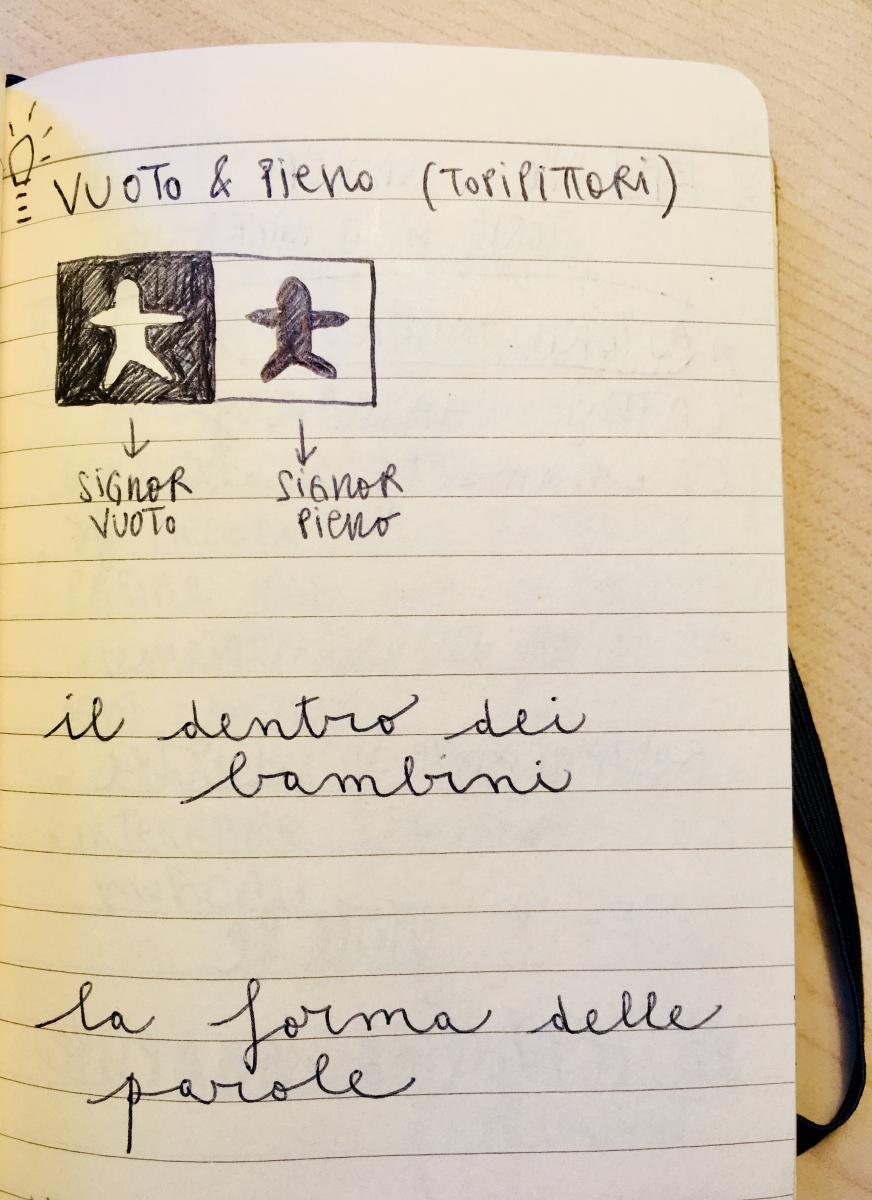 VUOTO & PIENO (TOPIPITTORI)
SIGNOR SIGNOR
VUOTO PIENO
il dentro dei
bambini
la forma delle
parole